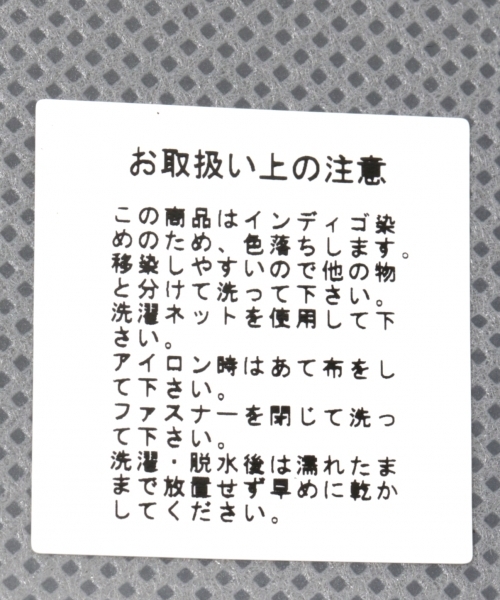 お取扱い上の注意
この商品はインディゴ染
めのため、色落ちします。
移染しやすいので他の物
と分けて洗って下さい。
洗濯ネットを使用して下
さい。
アイロン時はあて布をし
て下さい。
ファスナーを閉じて洗っ
て下さい。
洗濯・脱水後は濡れたま
まで放置せず早めに乾か
してください。